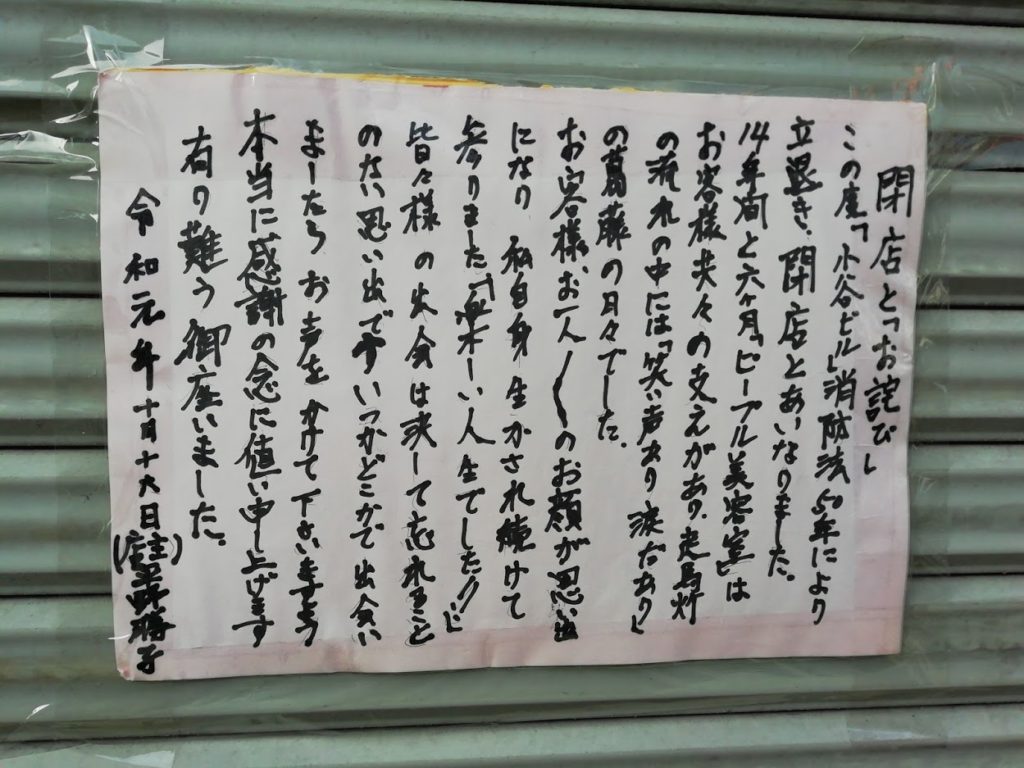 閉店と「お詫び」
この度「小谷ビル」消防法50年により
立退き、閉店とあいなりました。
14年間と六ヶ月「ピープル美容室」は
お客様共々の支えがあり、走馬灯
の流れの中には「笑い声あり涙だあり」
の葛藤の日々でした。
お客様お一人〳〵のお顔が思い出
になり 私自身生かされ続けて
参りました「楽しい人生でした!!」
皆々様の出会は決して忘れること
のない思い出ですいつかどこかで出会い
ましたらお声をかけて下さいますよう
本当に感謝の念に値い申し上げます
有り難う御座いました。
令和元年十月十六日
(店主)
野勝子